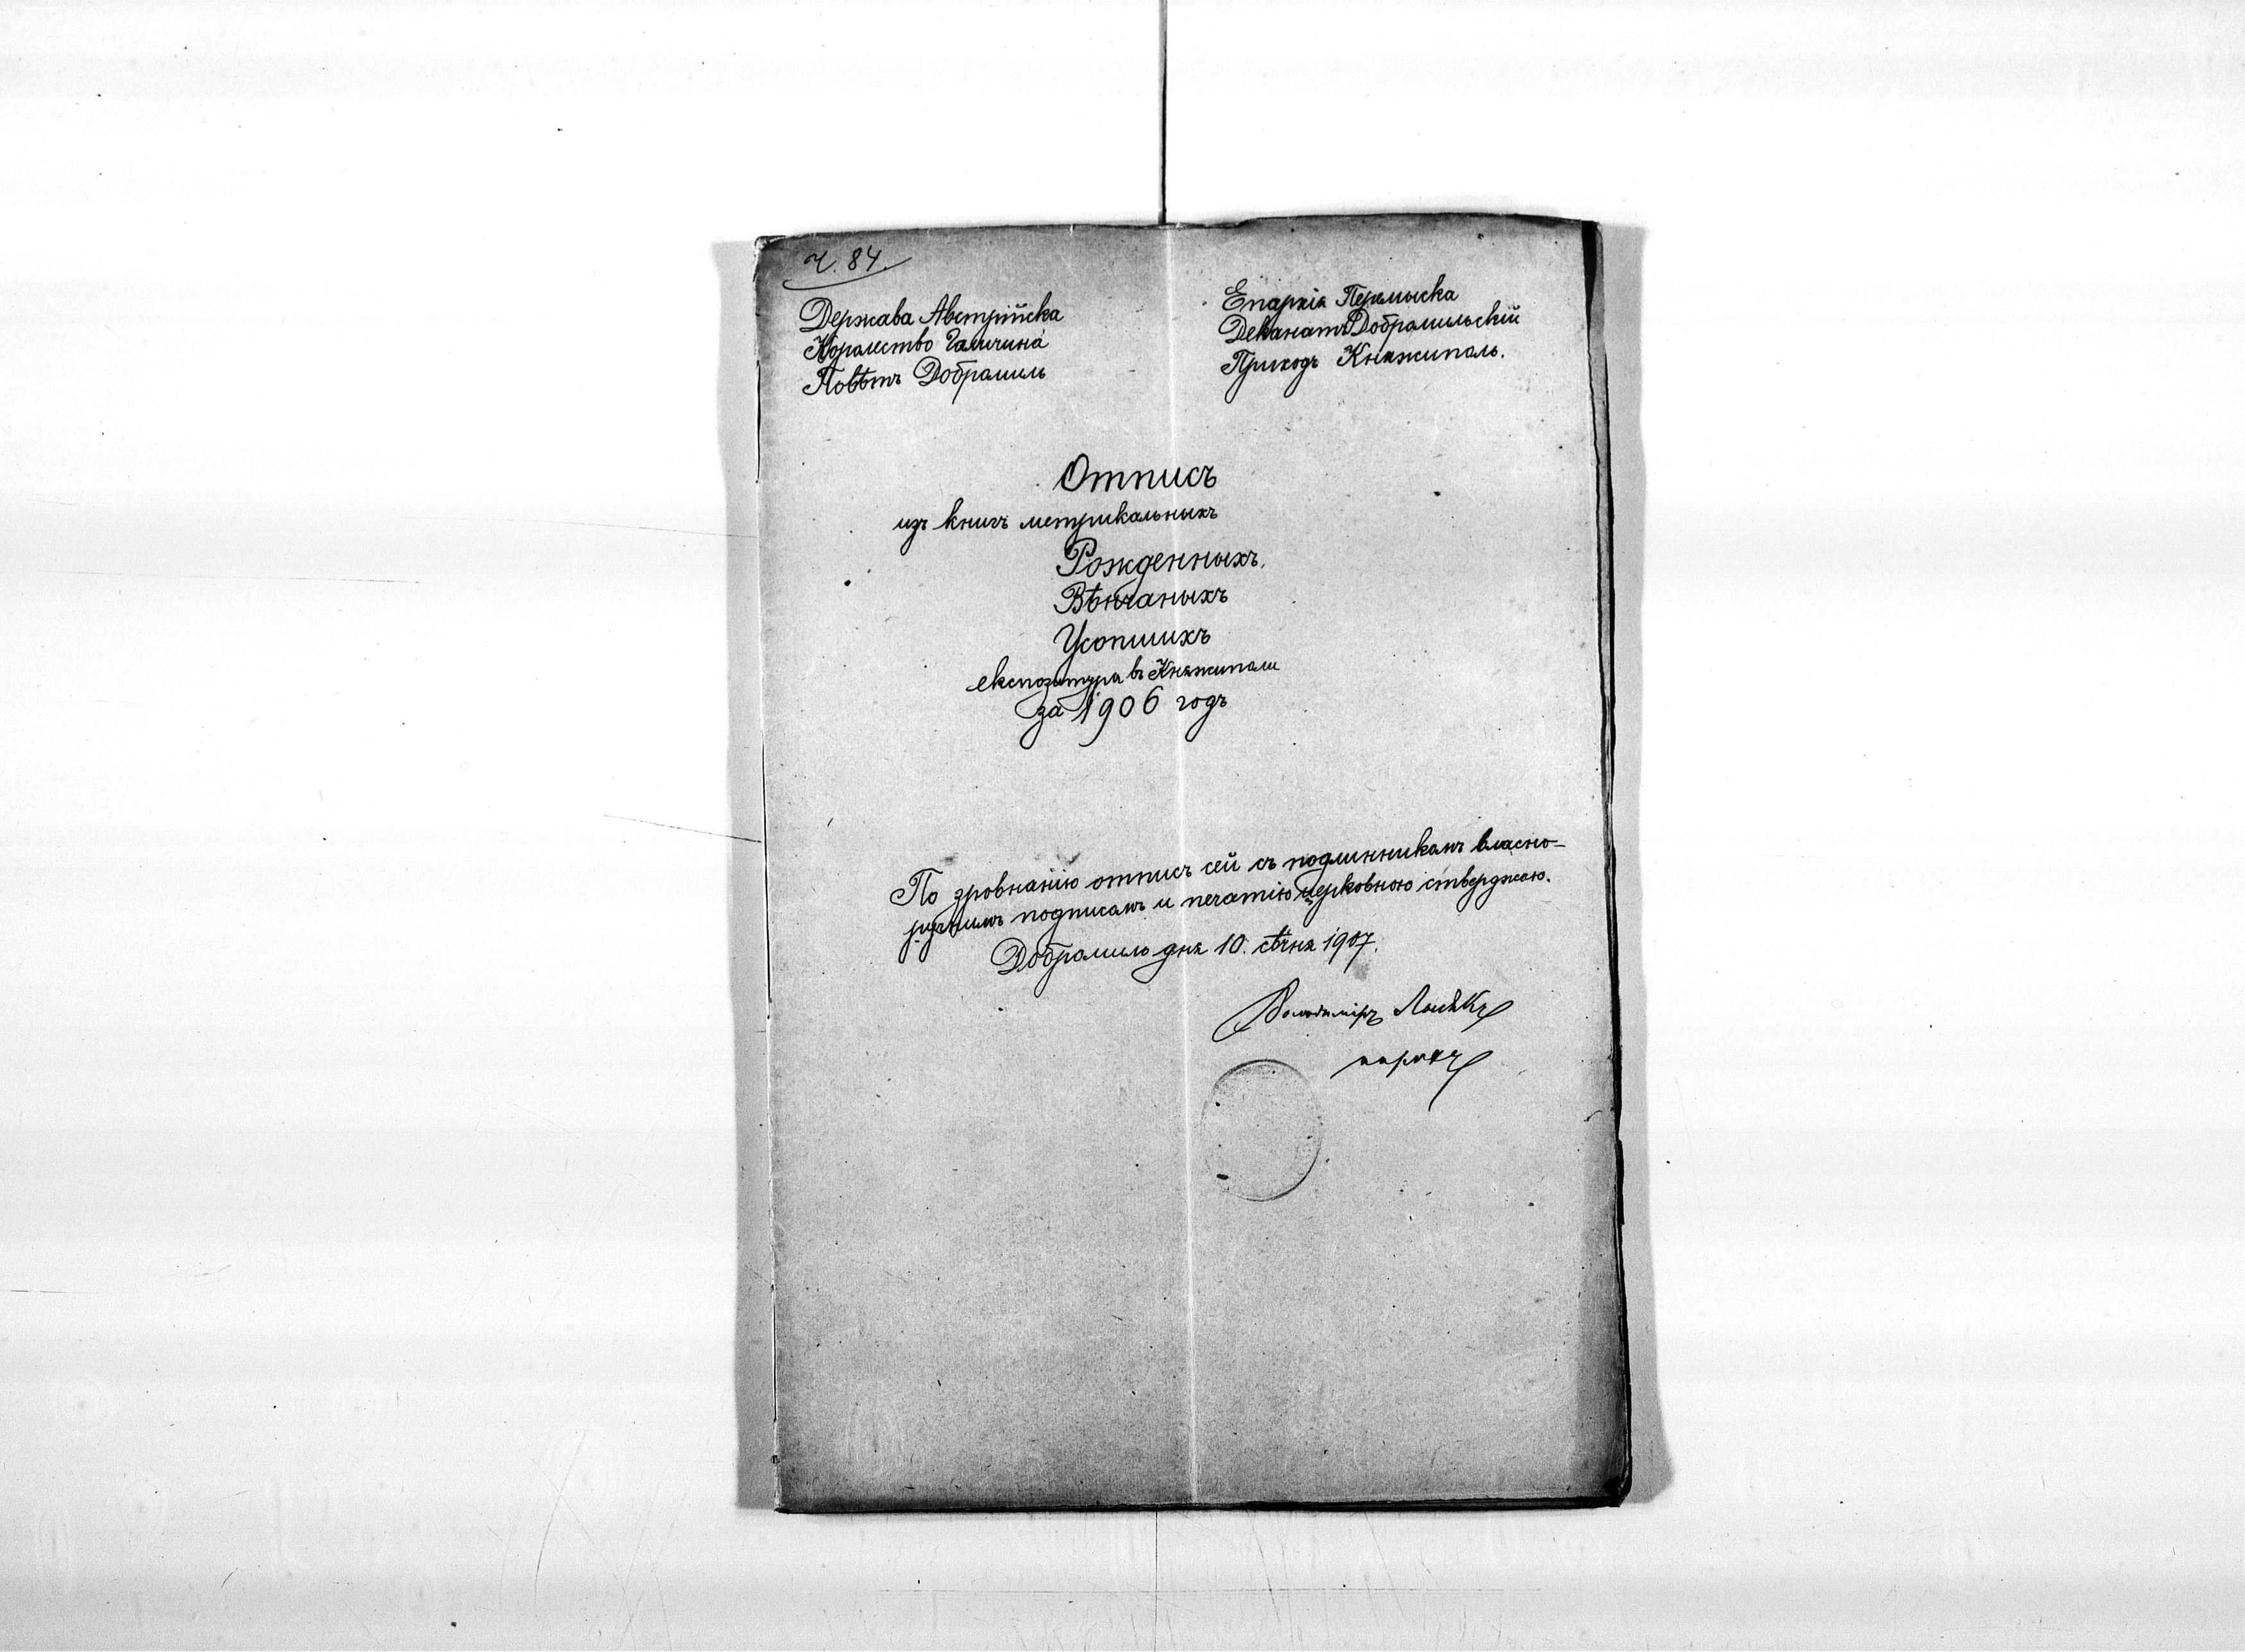 Ч. 84.
Держава Австрійска
Королество Галичина
Повѣтъ Добромиль
Епархія Перемыска
Деканатъ Добромильскій
Приходъ Княжиполь.
Отпись
изъ книгъ метрикальныхъ
Рожденныхъ,
Вѣнчаныхъ
Усопшихъ
експозитура въ Княжиполи
за 1906 годъ
По зровнанію отпись сей съ подлинникомъ власно-
ручнымъ подписомъ и печатію церковною стверджаю.
Добромиль дня 10. сѣчня 1907.
Володимiръ
парохъ